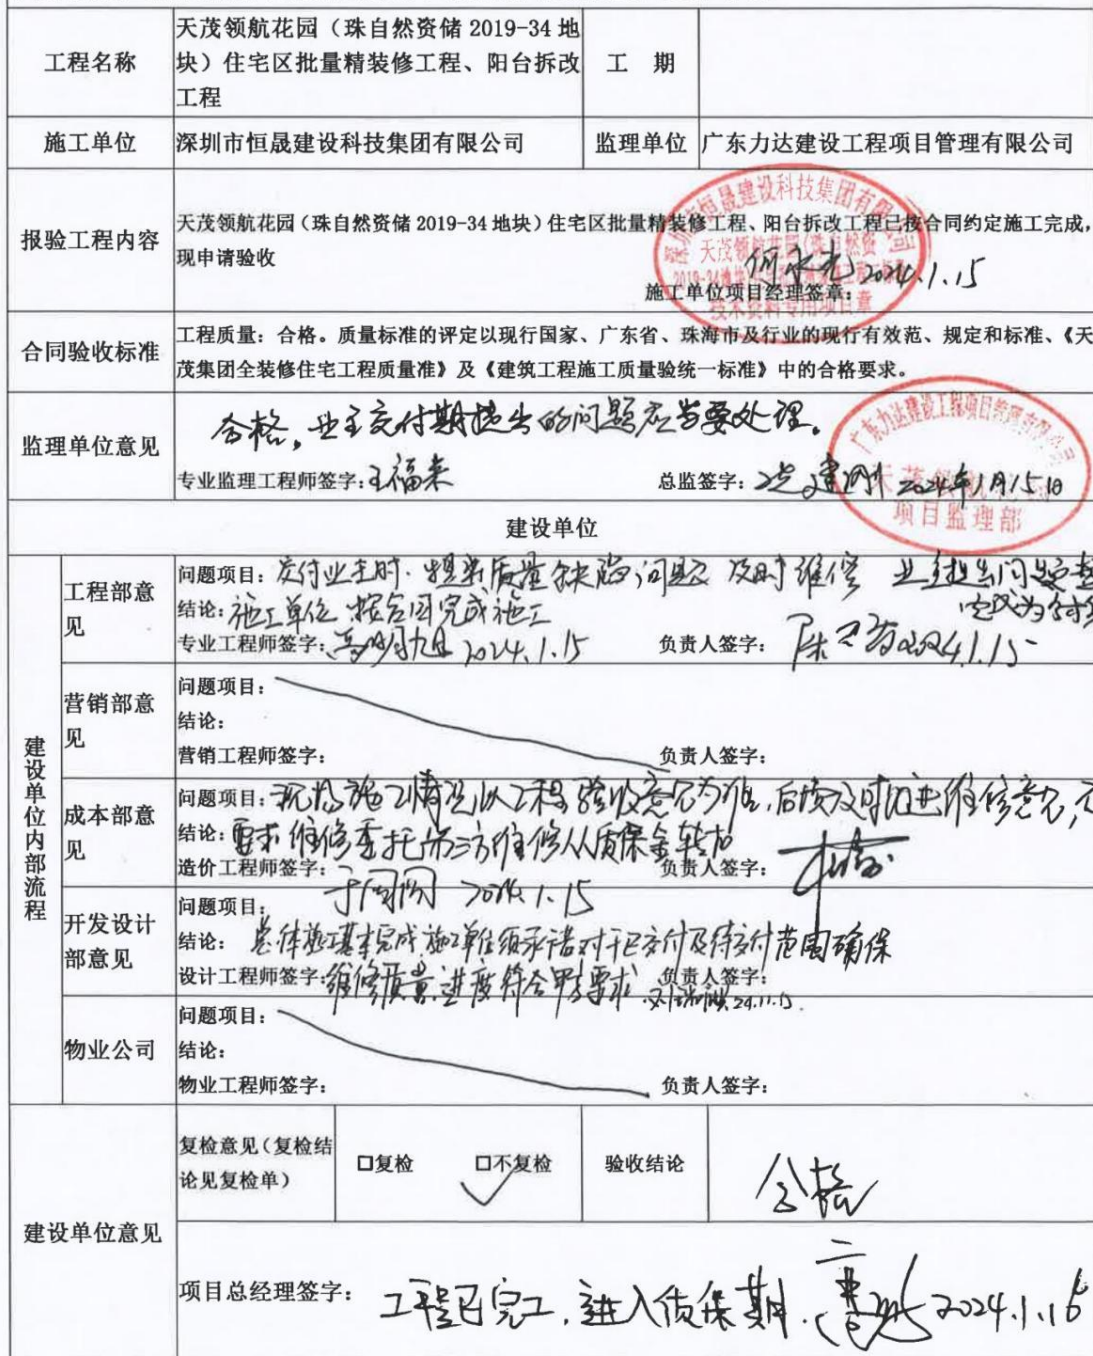 工程名称
天茂领航花园（珠自然资储 2019-34 地
块）住宅区批量精装修工程、阳台拆改
工程
工 期
施工单位
深圳市恒晟建设科技集团有限公司
监理单位
广东力达建设工程项目管理有限公司
报验工程内容
天茂领航花园（珠自然资储 2019-34 地块）住宅区批量精装修工程、阳台拆改工程已按合同约定施工完成，
现申请验收
施工单位项目经理签章：
何永光 2024.1.15
深圳市恒晟建设科技集团有限公司
天茂领航花园（珠自然资
技术资料专用项目章
合同验收标准
工程质量：合格。质量标准的评定以现行国家、广东省、珠海市及行业的现行有效范、规定和标准、《天
茂集团全装修住宅工程质量准》及《建筑工程施工质量验统一标准》中的合格要求。
监理单位意见
合格，业主交付期提出的问题应当要处理。
专业监理工程师签字：王福来
总监签字： 建刚 2024年1月15日
广东力达建设工程项目管理有限公司
天茂领航
项目监理部
建设单位
建设单位内部流程
工程部意见
问题项目：交付业主时，提出质量缺陷问题 及时维修 业主提出问题
结论：施工单位 按合同完成施工
专业工程师签字： 2024.1.15
负责人签字： 2024.1.15
营销部意见
问题项目：
结论：
营销工程师签字：
负责人签字：
成本部意见
问题项目：现场施工情况以工程验收意见为准，后续及时跟进维修意见，
结论：要求维修委托第三方维修从质保金转扣
造价工程师签字：于闪闪 2024.1.15
负责人签字：
开发设计部意见
问题项目：
结论：总体施工基本完成，施工单位须承诺对于已交付及待交付范围确保
设计工程师签字：维修质量、进度符合甲方要求
负责人签字：
物业公司
问题项目：
结论：
物业工程师签字：
负责人签字：
建设单位意见
复检意见（复检结
论见复检单）
□复检 □不复检
验收结论
合格
项目总经理签字：工程已完工，进入质保期. 2024.1.16